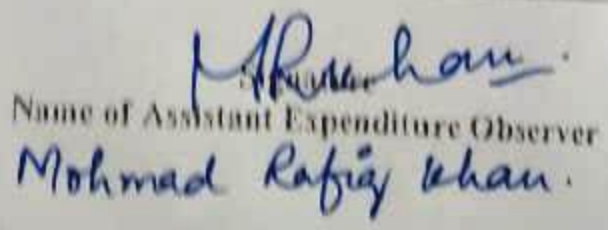 Name of Assistant Expenditure Observer
Mohmad Rafiq Khan.